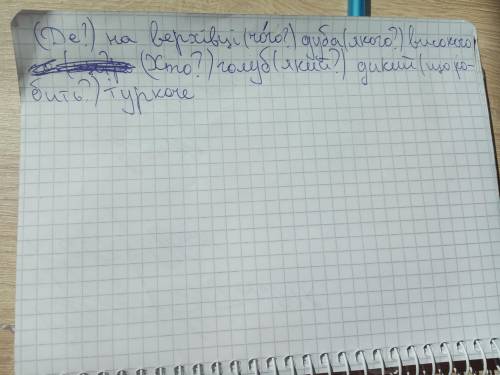 (Де?) на верхівці (чого?) дуба (якого?) високого
(Хто?) голуб (який?) дикий (що ро-
бить?) туркоче